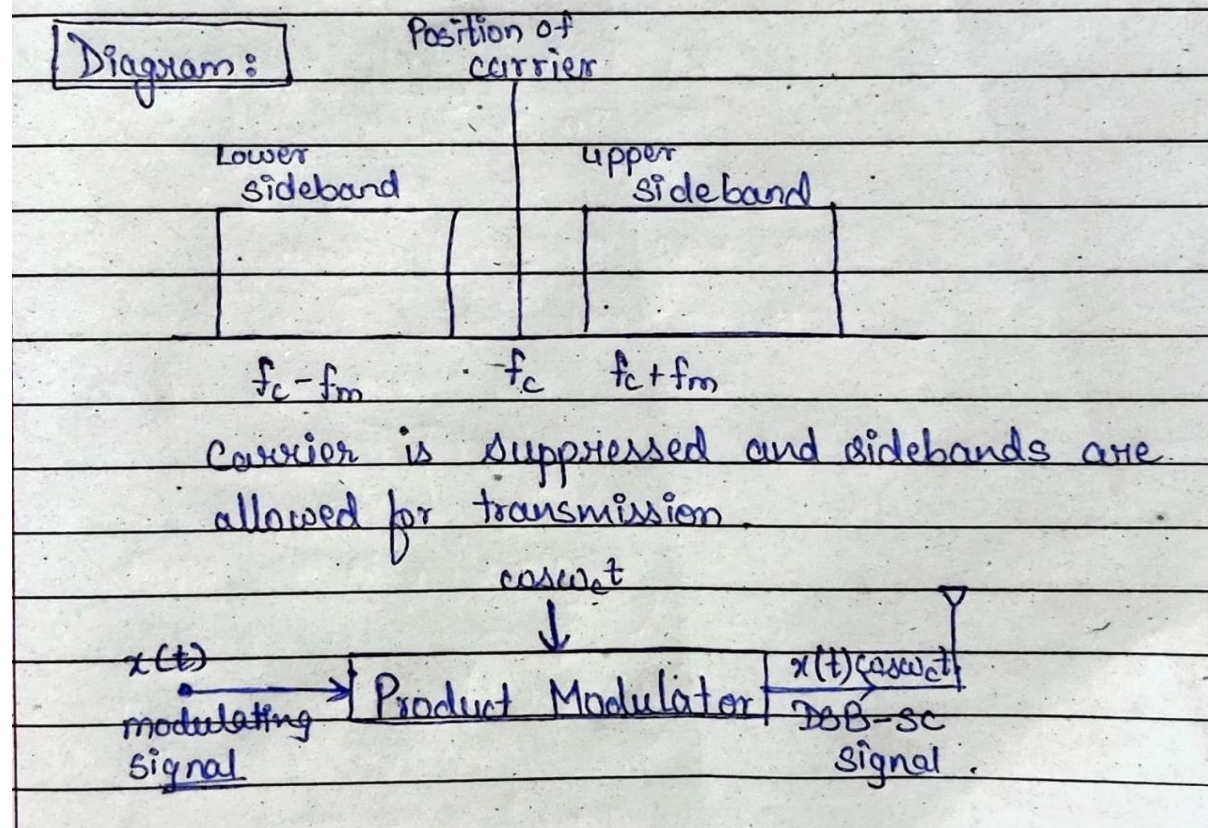 Diagram:
Position of
carrier
Lower
sideband
upper
sideband
fc-fm
fc
fc+fm
Carrier is suppressed and sidebands are
allowed for transmission.
cosωct
x(t)
modulating
signal
Product Modulator
x(t)cosωct
DSB-SC
signal.